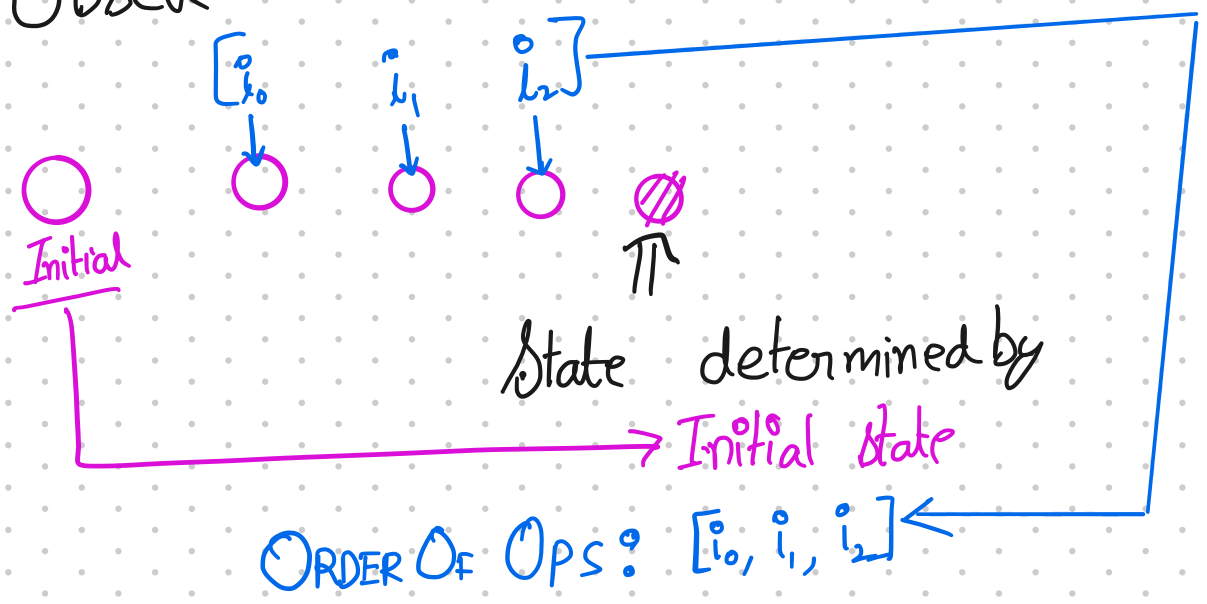 [i₀ i₁ i₂]
Initial
State determined by
Initial state
ORDER OF OPS: [i₀, i₁, i₂]